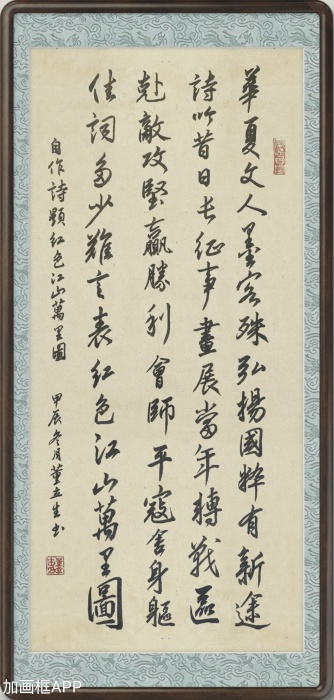 華夏文人墨客殊弘揚國粹有新途
詩吟昔日长征事畫展當年轉戰區
赴敵攻堅贏勝利會師平寇舍身軀
佳詞多少難言表紅色江山萬里圖
自作詩題紅色江山萬里圖 甲辰冬月董立生书
加画框APP